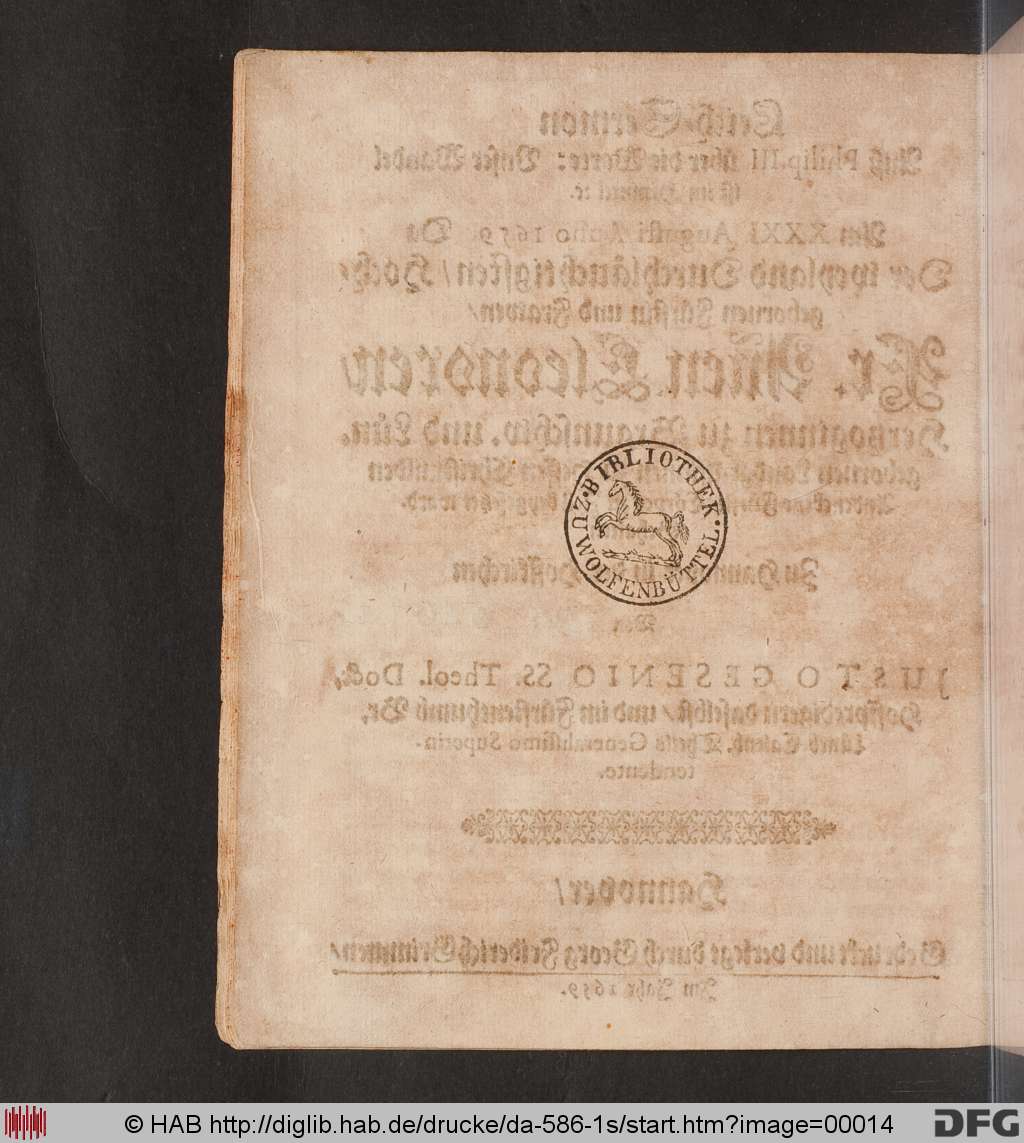 Leich-Sermon
Auß Philip. III über die Worte: Unser Wandel
ist im Himmel ꝛc.
Am XXXI Augusti Anno 1659. Da
Der weyland Durchläuchtigsten / Hoch-
gebornen Fürstin und Frawen /
Fr. Annen Eleonoren /
Hertzoginnen zu Braunschw. und Lün.
gebornen
Zu
Von
JUSTO GESENIO SS. Theol. Doct.,
Hoffpredigern daselbst / und im Fürstenthumb Br.
Lüneb. Calenb. Theils Generalissimo Superin-
tendente.
Hannover /
Gedruckt und verlegt durch Georg Friderich Grimmen /
Im Jahr 1659.
BIBLIOTHEK · ZU WOLFENBÜTTEL ·
© HAB http://diglib.hab.de/drucke/da-586-1s/start.htm?image=00014
DFG